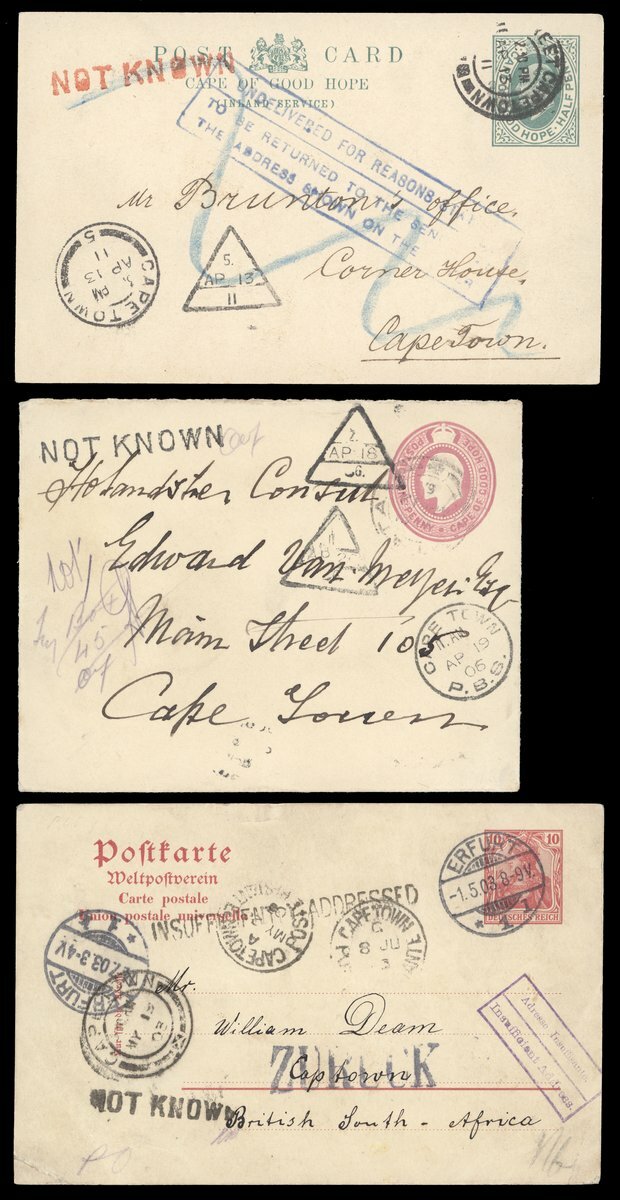 POST CARD
CAPE OF GOOD HOPE
(INLAND SERVICE)
NOT KNOWN
CAPE TOWN
HALFPE
UNDELIVERED FOR REASONS
TO BE RETURNED TO THE SEN
THE ADDRESS SHOWN ON THE
Mr Brunton's office,
Corner House,
CapeTown.
CAPE TOWN
PM
AP 13
11
5
5.
AP 13
11
NOT KNOWN
out
7.
AP 18
06.
ONE PENNY * CAPE OF GOOD HOPE
Consul
Edward Van
Main Street 105
Cape Town
45
CAPE TOWN
AP 19
06
P.B.S.
Postkarte
Weltpostverein
Carte postale
Union postale universelle
INSUFFICIENTLY ADDRESSED
10 10
DEUTSCHES REICH
ERFURT
-1.5.03.8-9V.
* 1 1
CAPETOWN
MY
CAPETOWN
8 JU
3
7.03.3-4V.
Mr.
William Deam
Captown
British South-Africa
ZURÜCK
NOT KNOWN
Insufficient Address.
PO